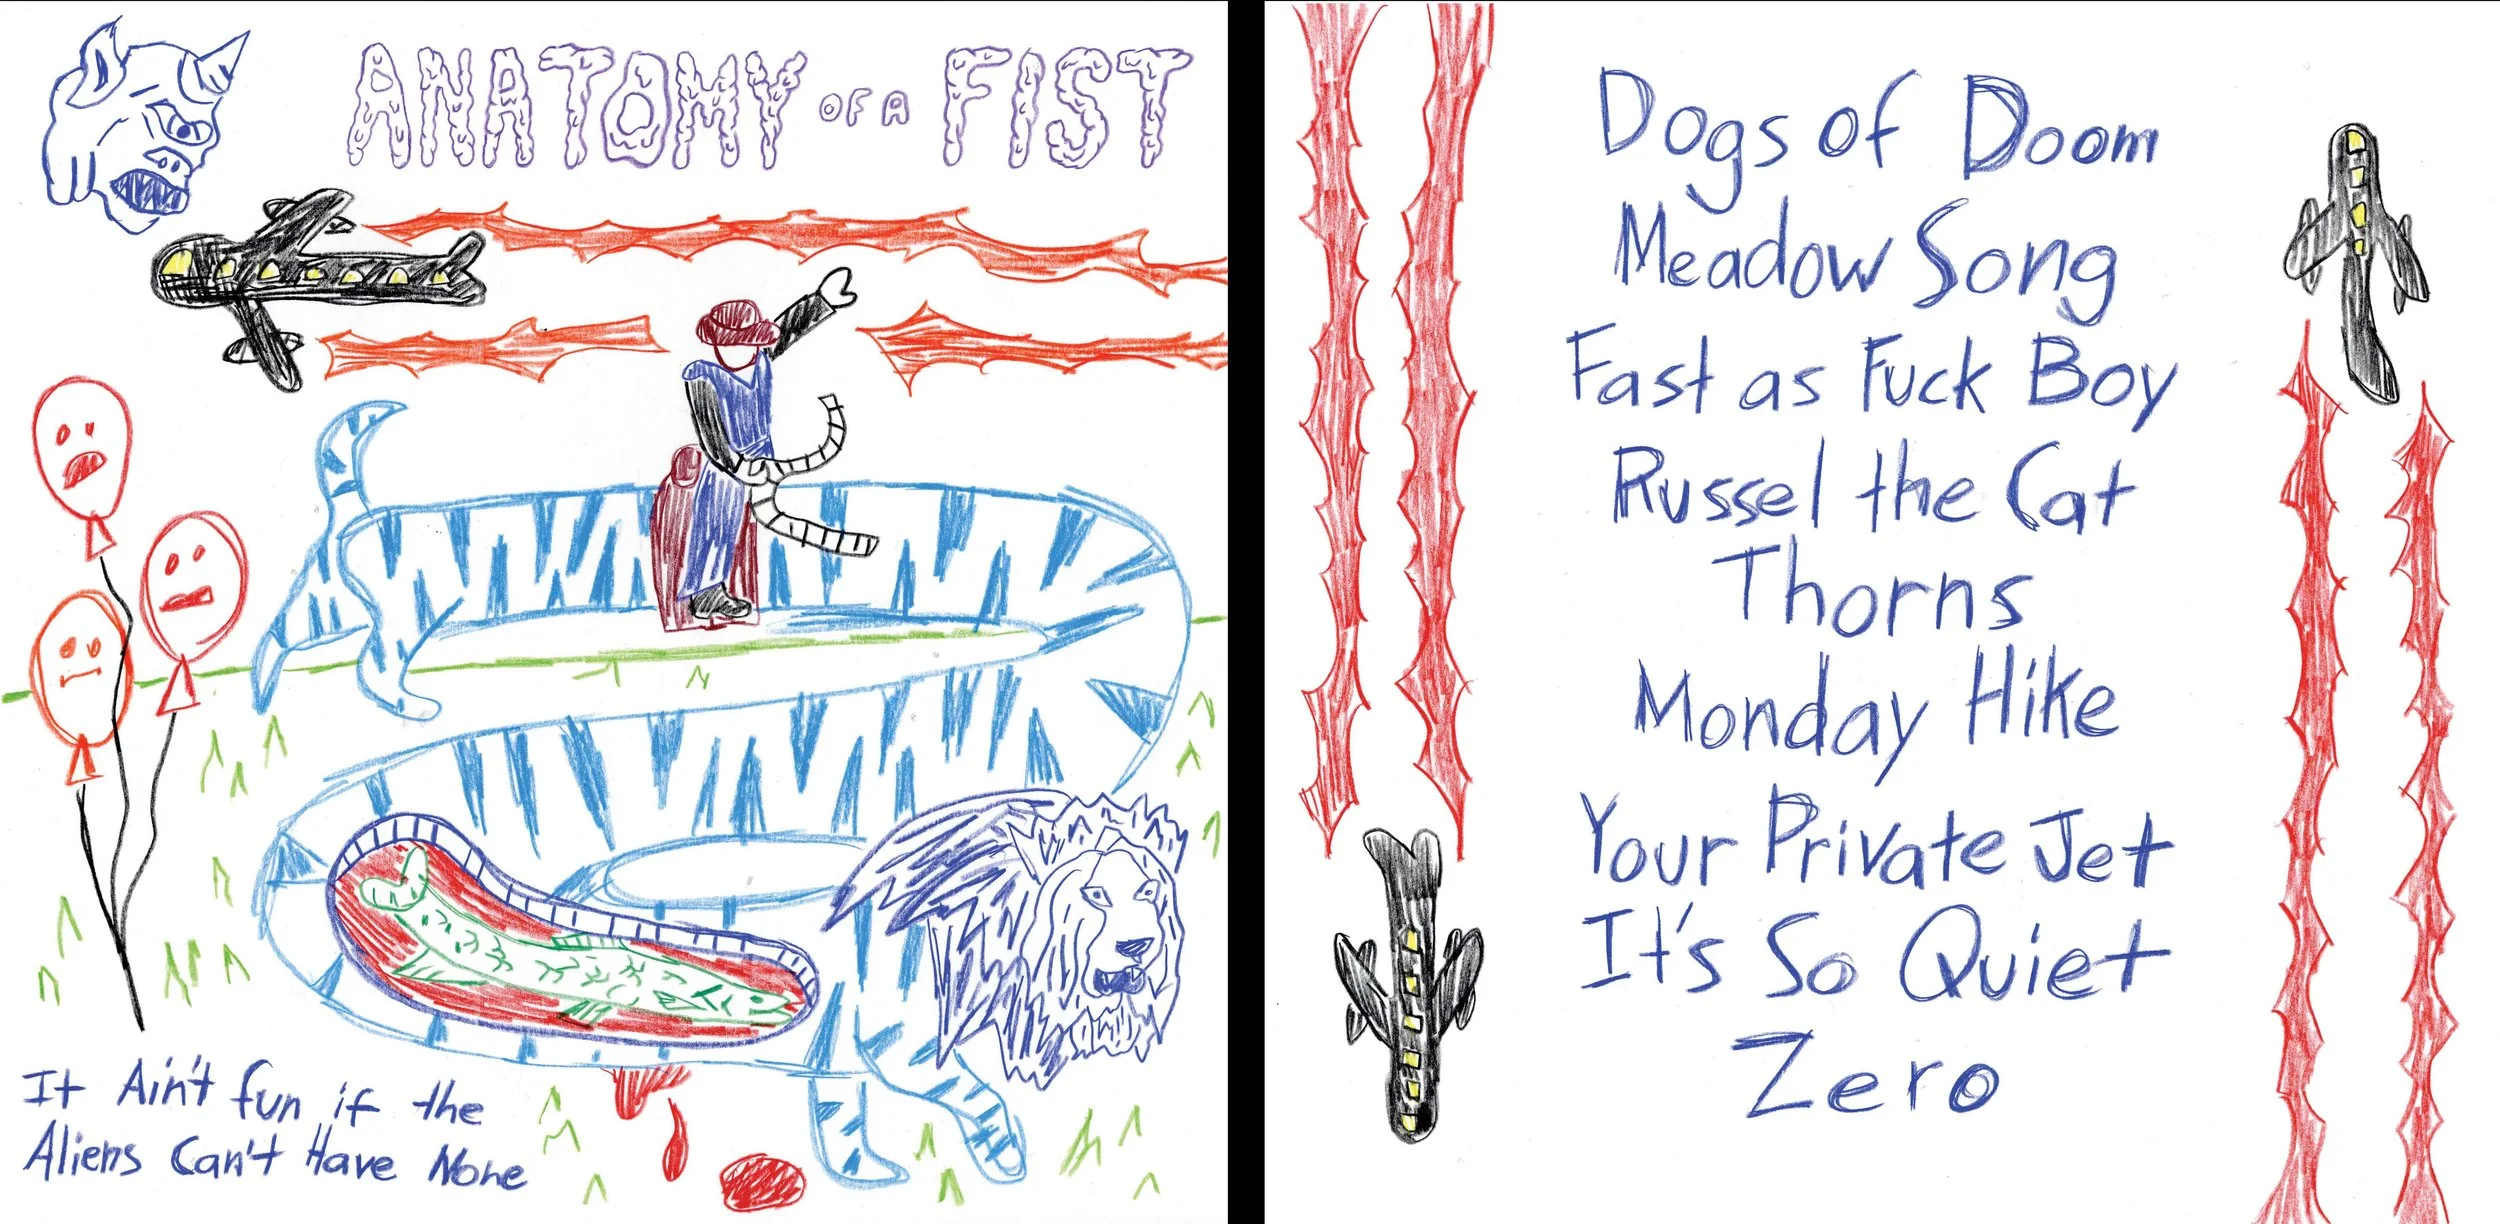 ANATOMY OF A FIST
It Ain't fun if the
Aliens Can't Have None
Dogs of Doom
Meadow Song
Fast as Fuck Boy
Russel the Cat
Thorns
Monday Hike
Your Private Jet
It's So Quiet
Zero